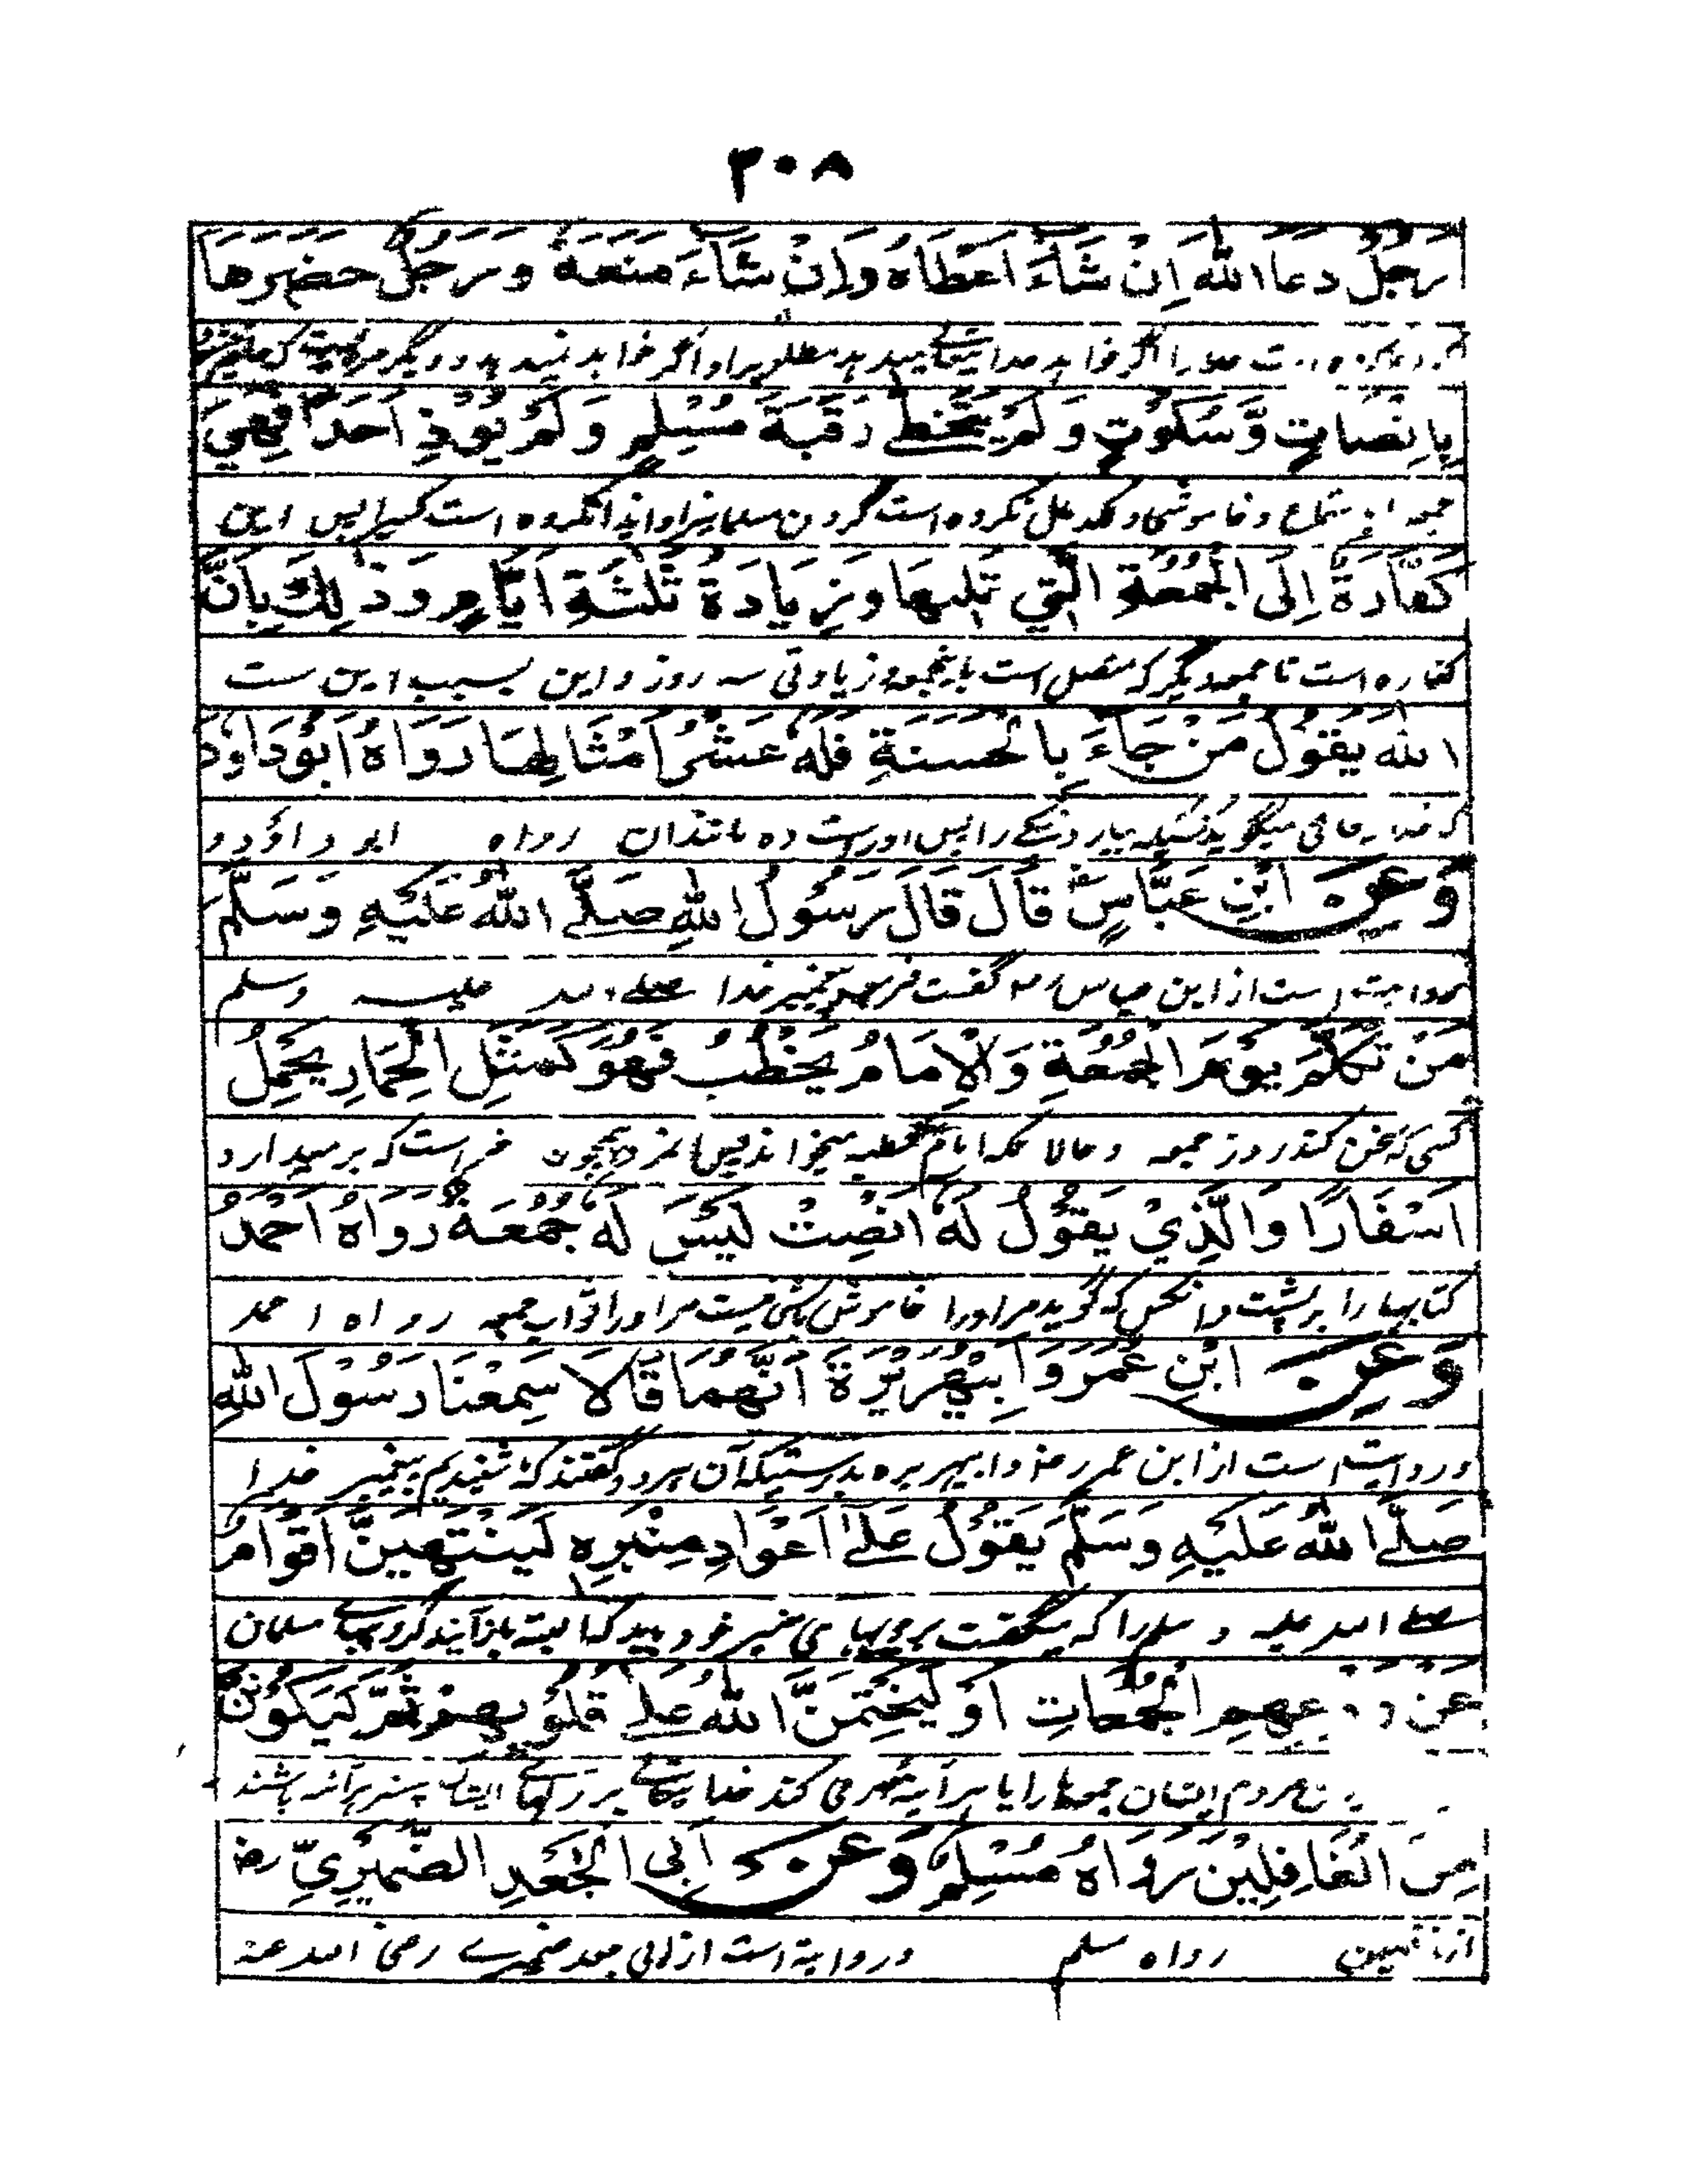 ۳۰۸
رَجُلٌ دَعَا اللهَ اِنْ شَآءَ اَعْطَاهُ وَاِنْ شَآءَ مَنَعَهُ وَرَجُلٌ حَضَرَهَا
را اگر خواهد میدهد مطلوب او اگر خواهد ندهد و دیگر مردیست که
بِاِنْصَاتٍ وَّسُكُوْتٍ وَلَمْ يَتَخَطَّ رَقَبَةَ مُسْلِمٍ وَلَمْ يُوْذِ اَحَدًا فَهِيَ
جمعه و خاموشی و نکرده است گردن مسلمانیرا و ایذا نکرده است کسیرا پس این
كَفَّارَةٌ اِلَى الْجُمُعَةِ الَّتِي تَلِيْهَا وَزِيَادَةُ ثَلٰثَةِ اَيَّامٍ وَذٰلِكَ بِاَنَّ
کفاره است تا جمعه دیگر که متصل است باینجمعه و زیادتی سه روز و این بسبب این ست
اللهَ يَقُوْلُ مَنْ جَآءَ بِالْحَسَنَةِ فَلَهٗ عَشْرُ اَمْثَالِهَا رَوَاهُ اَبُوْدَاوٗدَ
که خدا میگوید کسیکه بیارد نیکی را پس اوراست ده مانند آن رواه ابو داؤد و
وَعَنِ ابْنِ عَبَّاسٍ قَالَ قَالَ رَسُوْلُ اللهِ صَلَّى اللهُ عَلَيْهِ وَسَلَّمَ
روایت است از ابن عباس رض گفت فرمود پیغمبر خدا صلے الله علیه وسلم
مَنْ تَكَلَّمَ يَوْمَ الْجُمُعَةِ وَالْاِمَامُ يَخْطُبُ فَهُوَ كَمَثَلِ الْحِمَارِ يَحْمِلُ
کسی که سخن کند روز جمعه و حالانکه امام خطبه میخواند پس آنمرد همچون خر است که برمیدارد
اَسْفَارًا وَالَّذِيْ يَقُوْلُ لَهٗ اَنْصِتْ لَيْسَ لَهٗ جُمُعَةٌ رَوَاهُ اَحْمَدُ
کتابها را بر پشت و آنکس که گوید مر اورا خاموش باش نیست مر اورا ثواب جمعه رواه احمد
وَعَنِ ابْنِ عُمَرَ وَاَبِيْهُرَيْرَةَ اَنَّهُمَا قَالَا سَمِعْنَا رَسُوْلَ اللهِ
و روایت است از ابن عمر رض و ابیهریره بدرستیکه آن هردو گفتند که شنیدیم پیغمبر خدا
صَلَّى اللهُ عَلَيْهِ وَسَلَّمَ يَقُوْلُ عَلٰى اَعْوَادِ مِنْبَرِهٖ لَيَنْتَهِيَنَّ اَقْوَامٌ
صلے الله علیه و سلم را که میگفت بر چوبهای منبر خود باید که البته باز آیند گروههاے مسلمان
عَنْ وَدْعِهِمُ الْجُمُعَاتِ اَوْ لَيَخْتِمَنَّ اللهُ عَلٰى قُلُوْبِهِمْ ثُمَّ لَيَكُوْنُنَّ
مردم ایشان جمعها را یا هرآینه مهر می کند خدا بر دلهاے ایشان پس هرآئنه باشند
مِنَ الْغَافِلِيْنَ رَوَاهُ مُسْلِمٌ وَعَنْ اَبِي الْجَعْدِ الضُّمَيْرِيِّ رض
از غافلین رواه مسلم و روایة است از ابی جعد ضمیرے رضی الله عنه